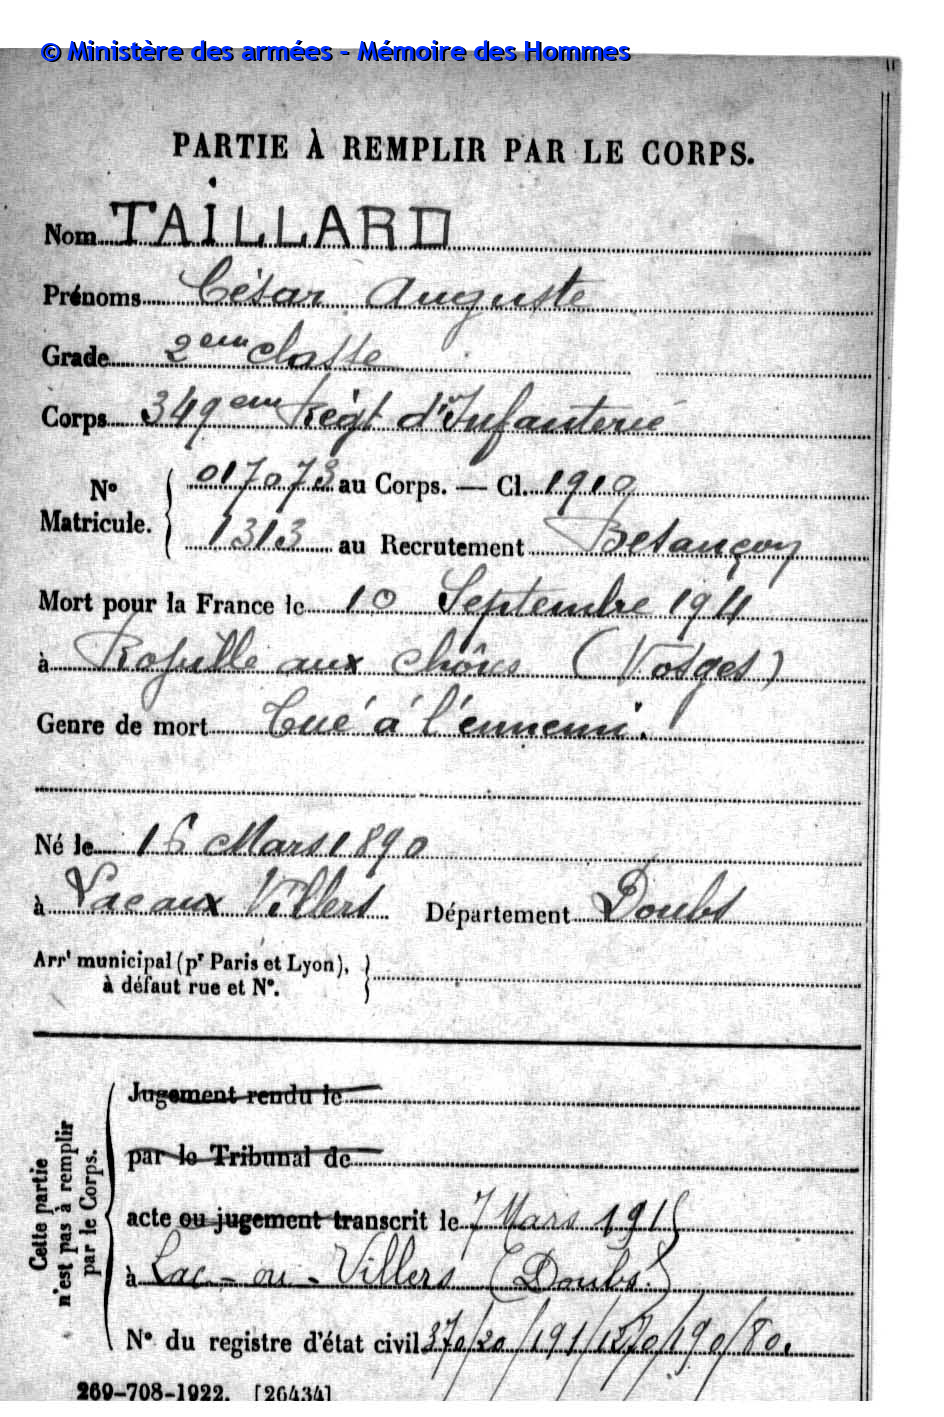 © Ministère des armées - Mémoire des Hommes
PARTIE À REMPLIR PAR LE CORPS.
Nom TAILLARD
Prénoms César Auguste
Grade 2em classe
Corps 349em Regt d'Infanterie
No Matricule. 017073 au Corps. — Cl. 1910
1313 au Recrutement Besançon
Mort pour la France le 10 Septembre 1914
à aux (Vosges)
Genre de mort Tué à l'ennemi.
Né le 16 Mars 1890
à Lac aux Villers Département Doubs
Arrt municipal (pr Paris et Lyon),
à défaut rue et No.
Cette partie
n'est pas à remplir
par le Corps.
Jugement rendu le
par le Tribunal de
acte ou jugement transcrit le 7 Mars 1915
à Lac-ou-Villers (Doubs)
No du registre d'état civil
269-708-1922. [26434]